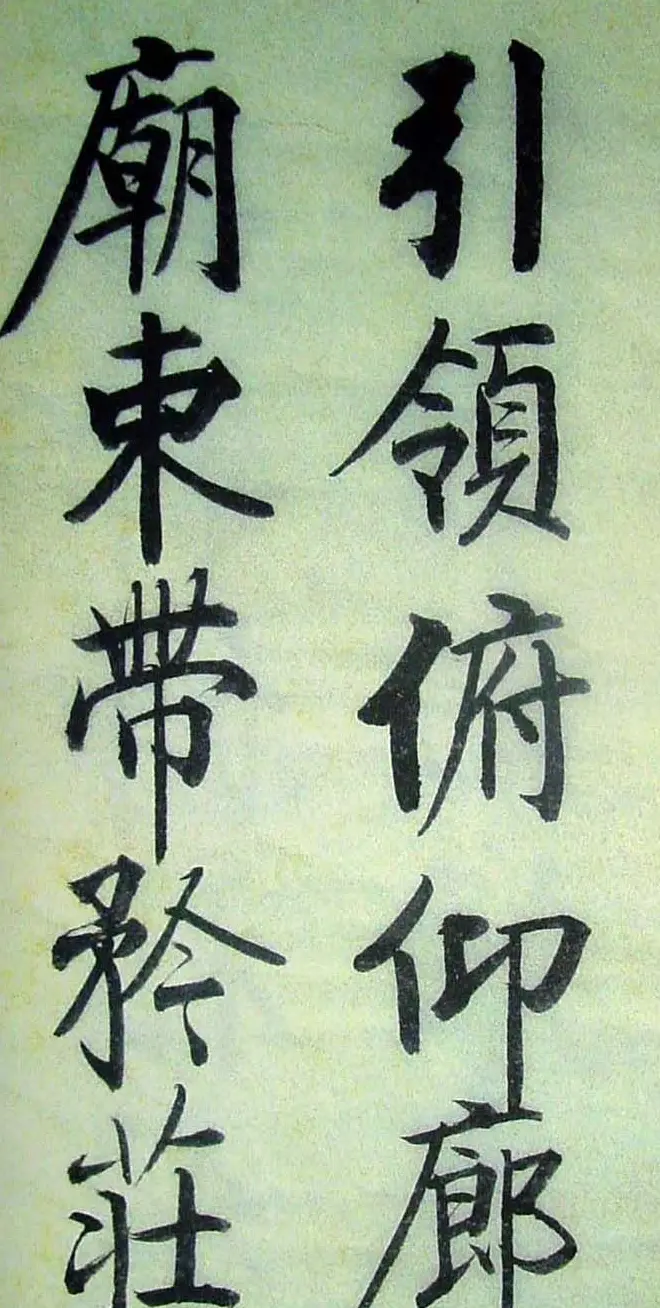 引領俯仰廊
廟束帶矜莊